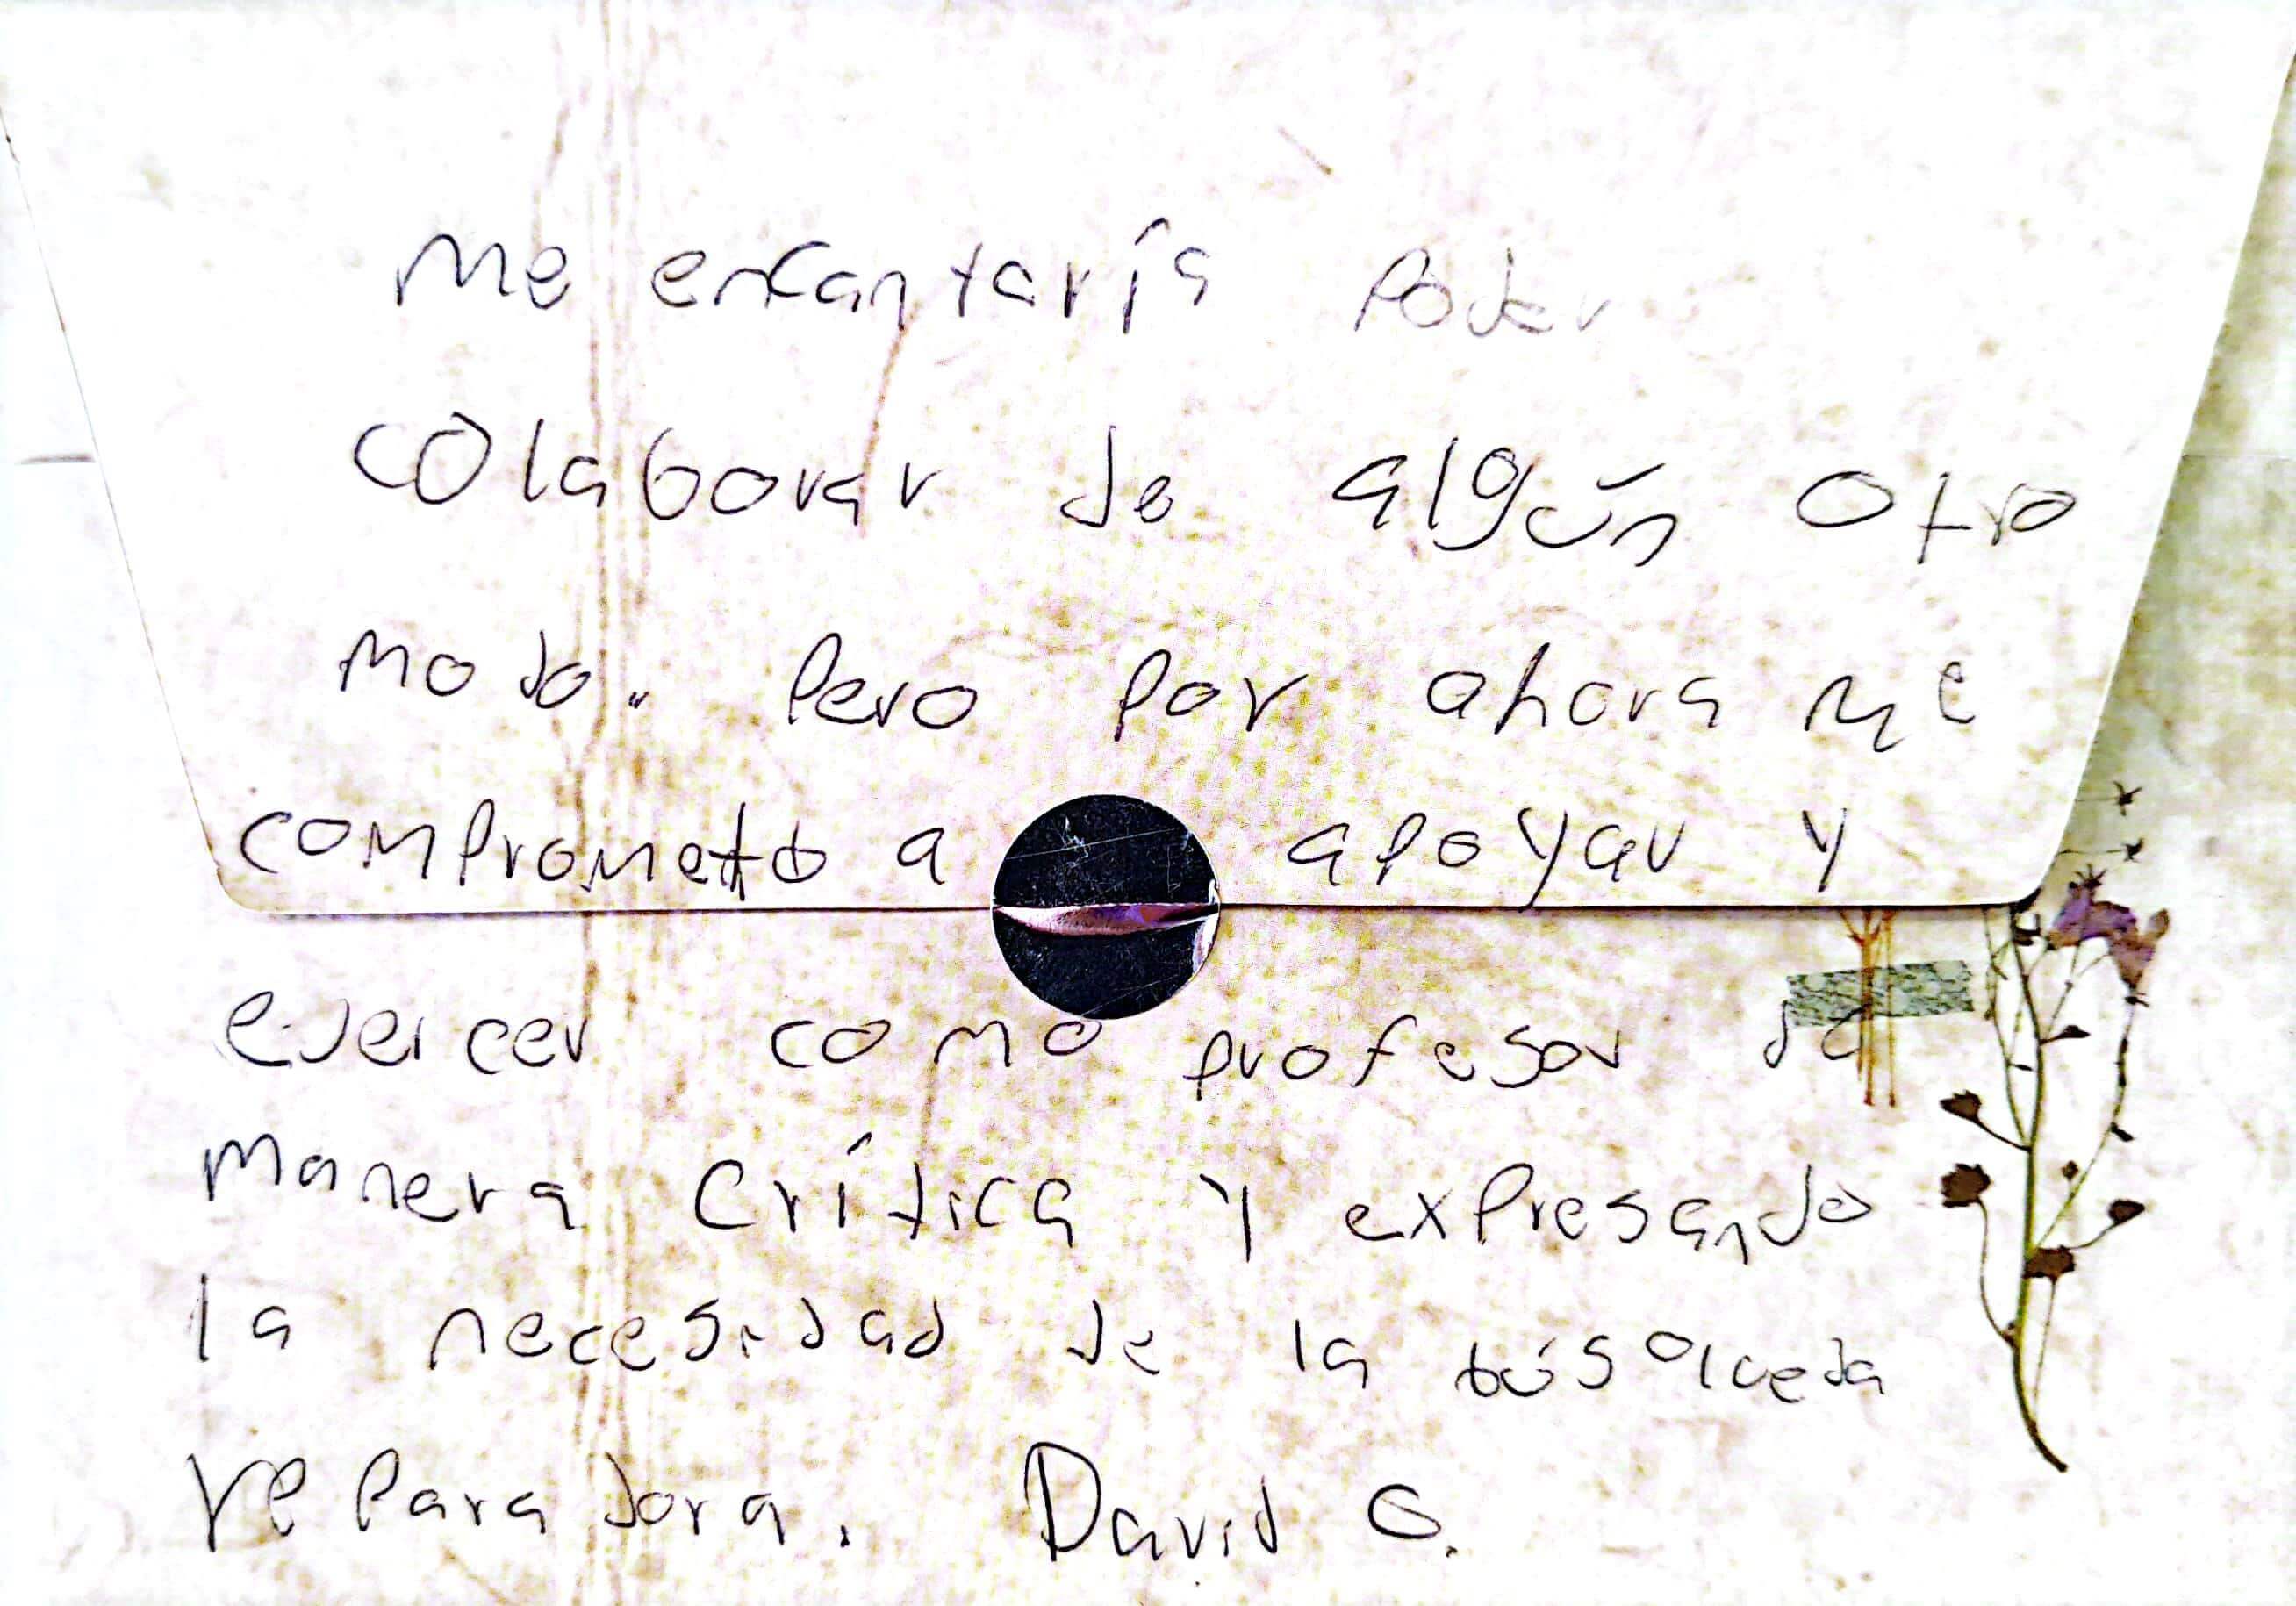 Me encantaría Poder
colaborar de algún otro
modo. Pero por ahora me
comprometo a apoyar y
ejercer como profesor de
manera crítica y expresando
la necesidad de la búsqueda
reparadora. David G.